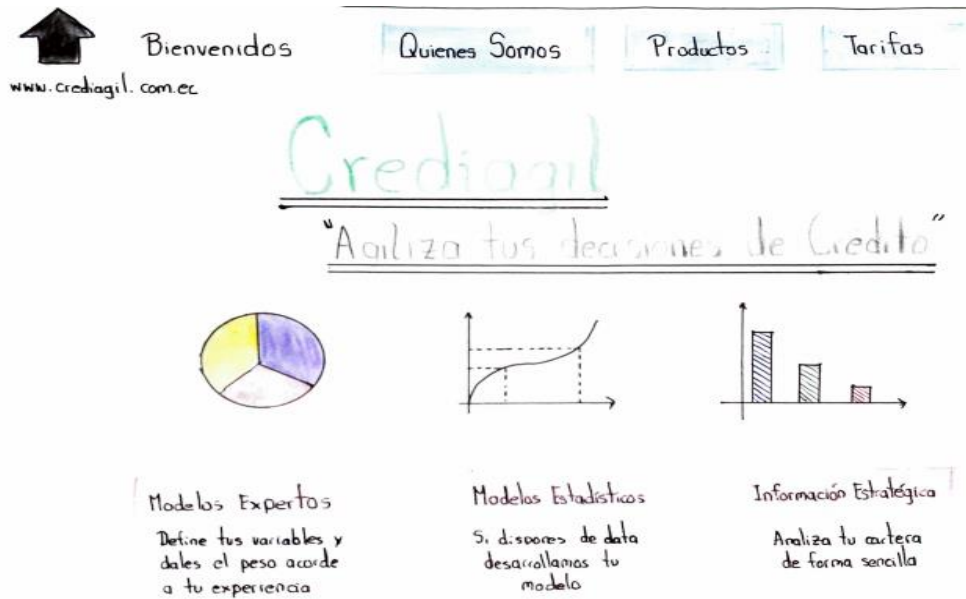 Bienvenidos
Quienes Somos
Productos
Tarifas
www.crediagil.com.ec
Crediagil
"Agiliza tus decisiones de Crédito"
Modelos Expertos
Define tus variables y
dales el peso acorde
a tu experiencia
Modelos Estadísticos
Si dispones de data
desarrollamos tu
modelo
Información Estratégica
Analiza tu cartera
de forma sencilla